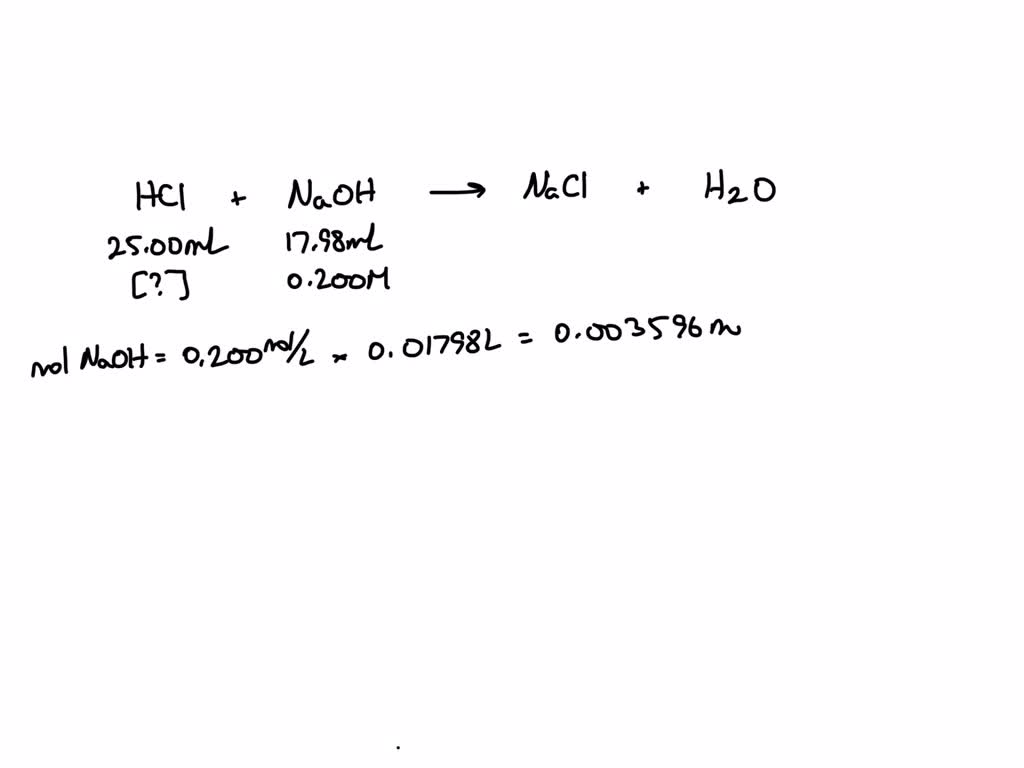 HCl + NaOH → NaCl + H2O
25.00mL 17.98mL
[?] 0.200M
mol NaOH = 0.200 mol/L × 0.01798L = 0.003596 m